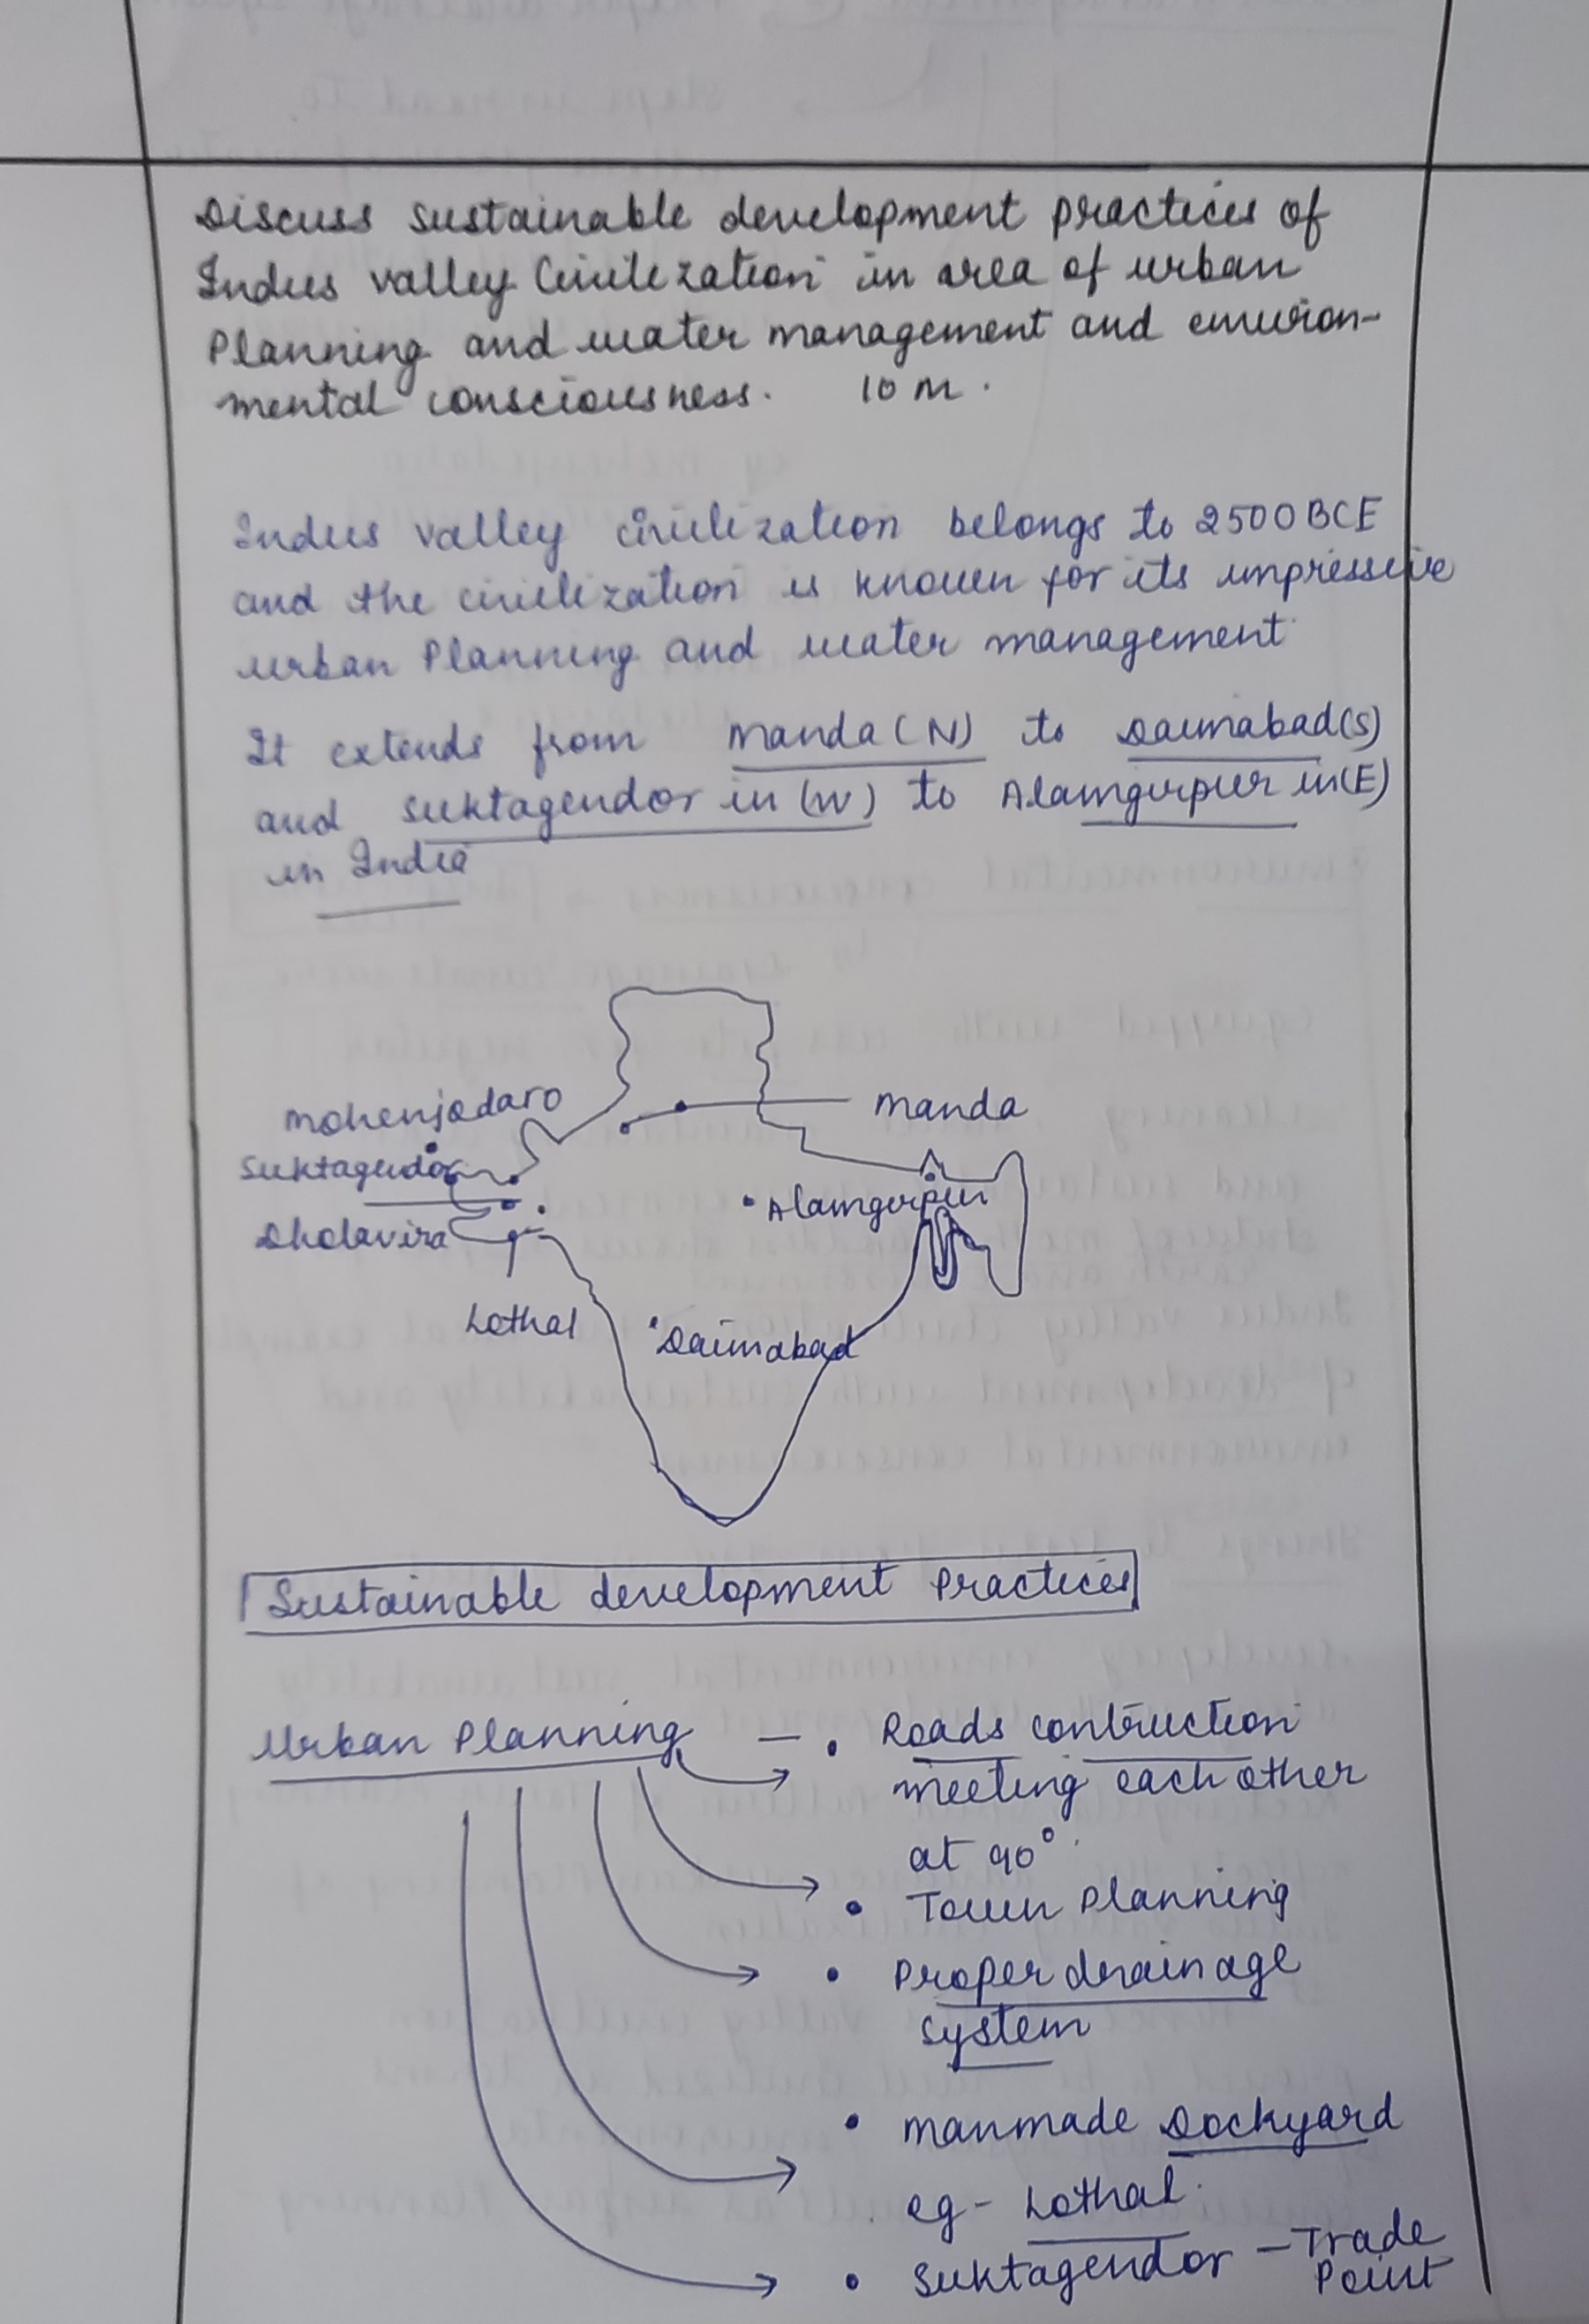 Discuss sustainable development practices of
Indus valley Civilization in area of urban
Planning and water management and environ-
mental consciousness. 10 m.
Indus valley civilization belongs to 2500 BCE
and the civilization is known for its impressive
urban Planning and water management
It extends from Manda (N) to Daimabad (S)
and suktagendor in (W) to Alamgirpur in (E)
in India
Mohenjodaro
Manda
Suktagendor
Alamgirpur
Dholavira
Lothal
Daimabad
Sustainable development Practices
Urban Planning — • Roads contruction
meeting each other
at 90°.
• Town Planning
• Proper drainage
system
• manmade Dockyard
eg - Lothal.
• Suktagendor — Trade
Point